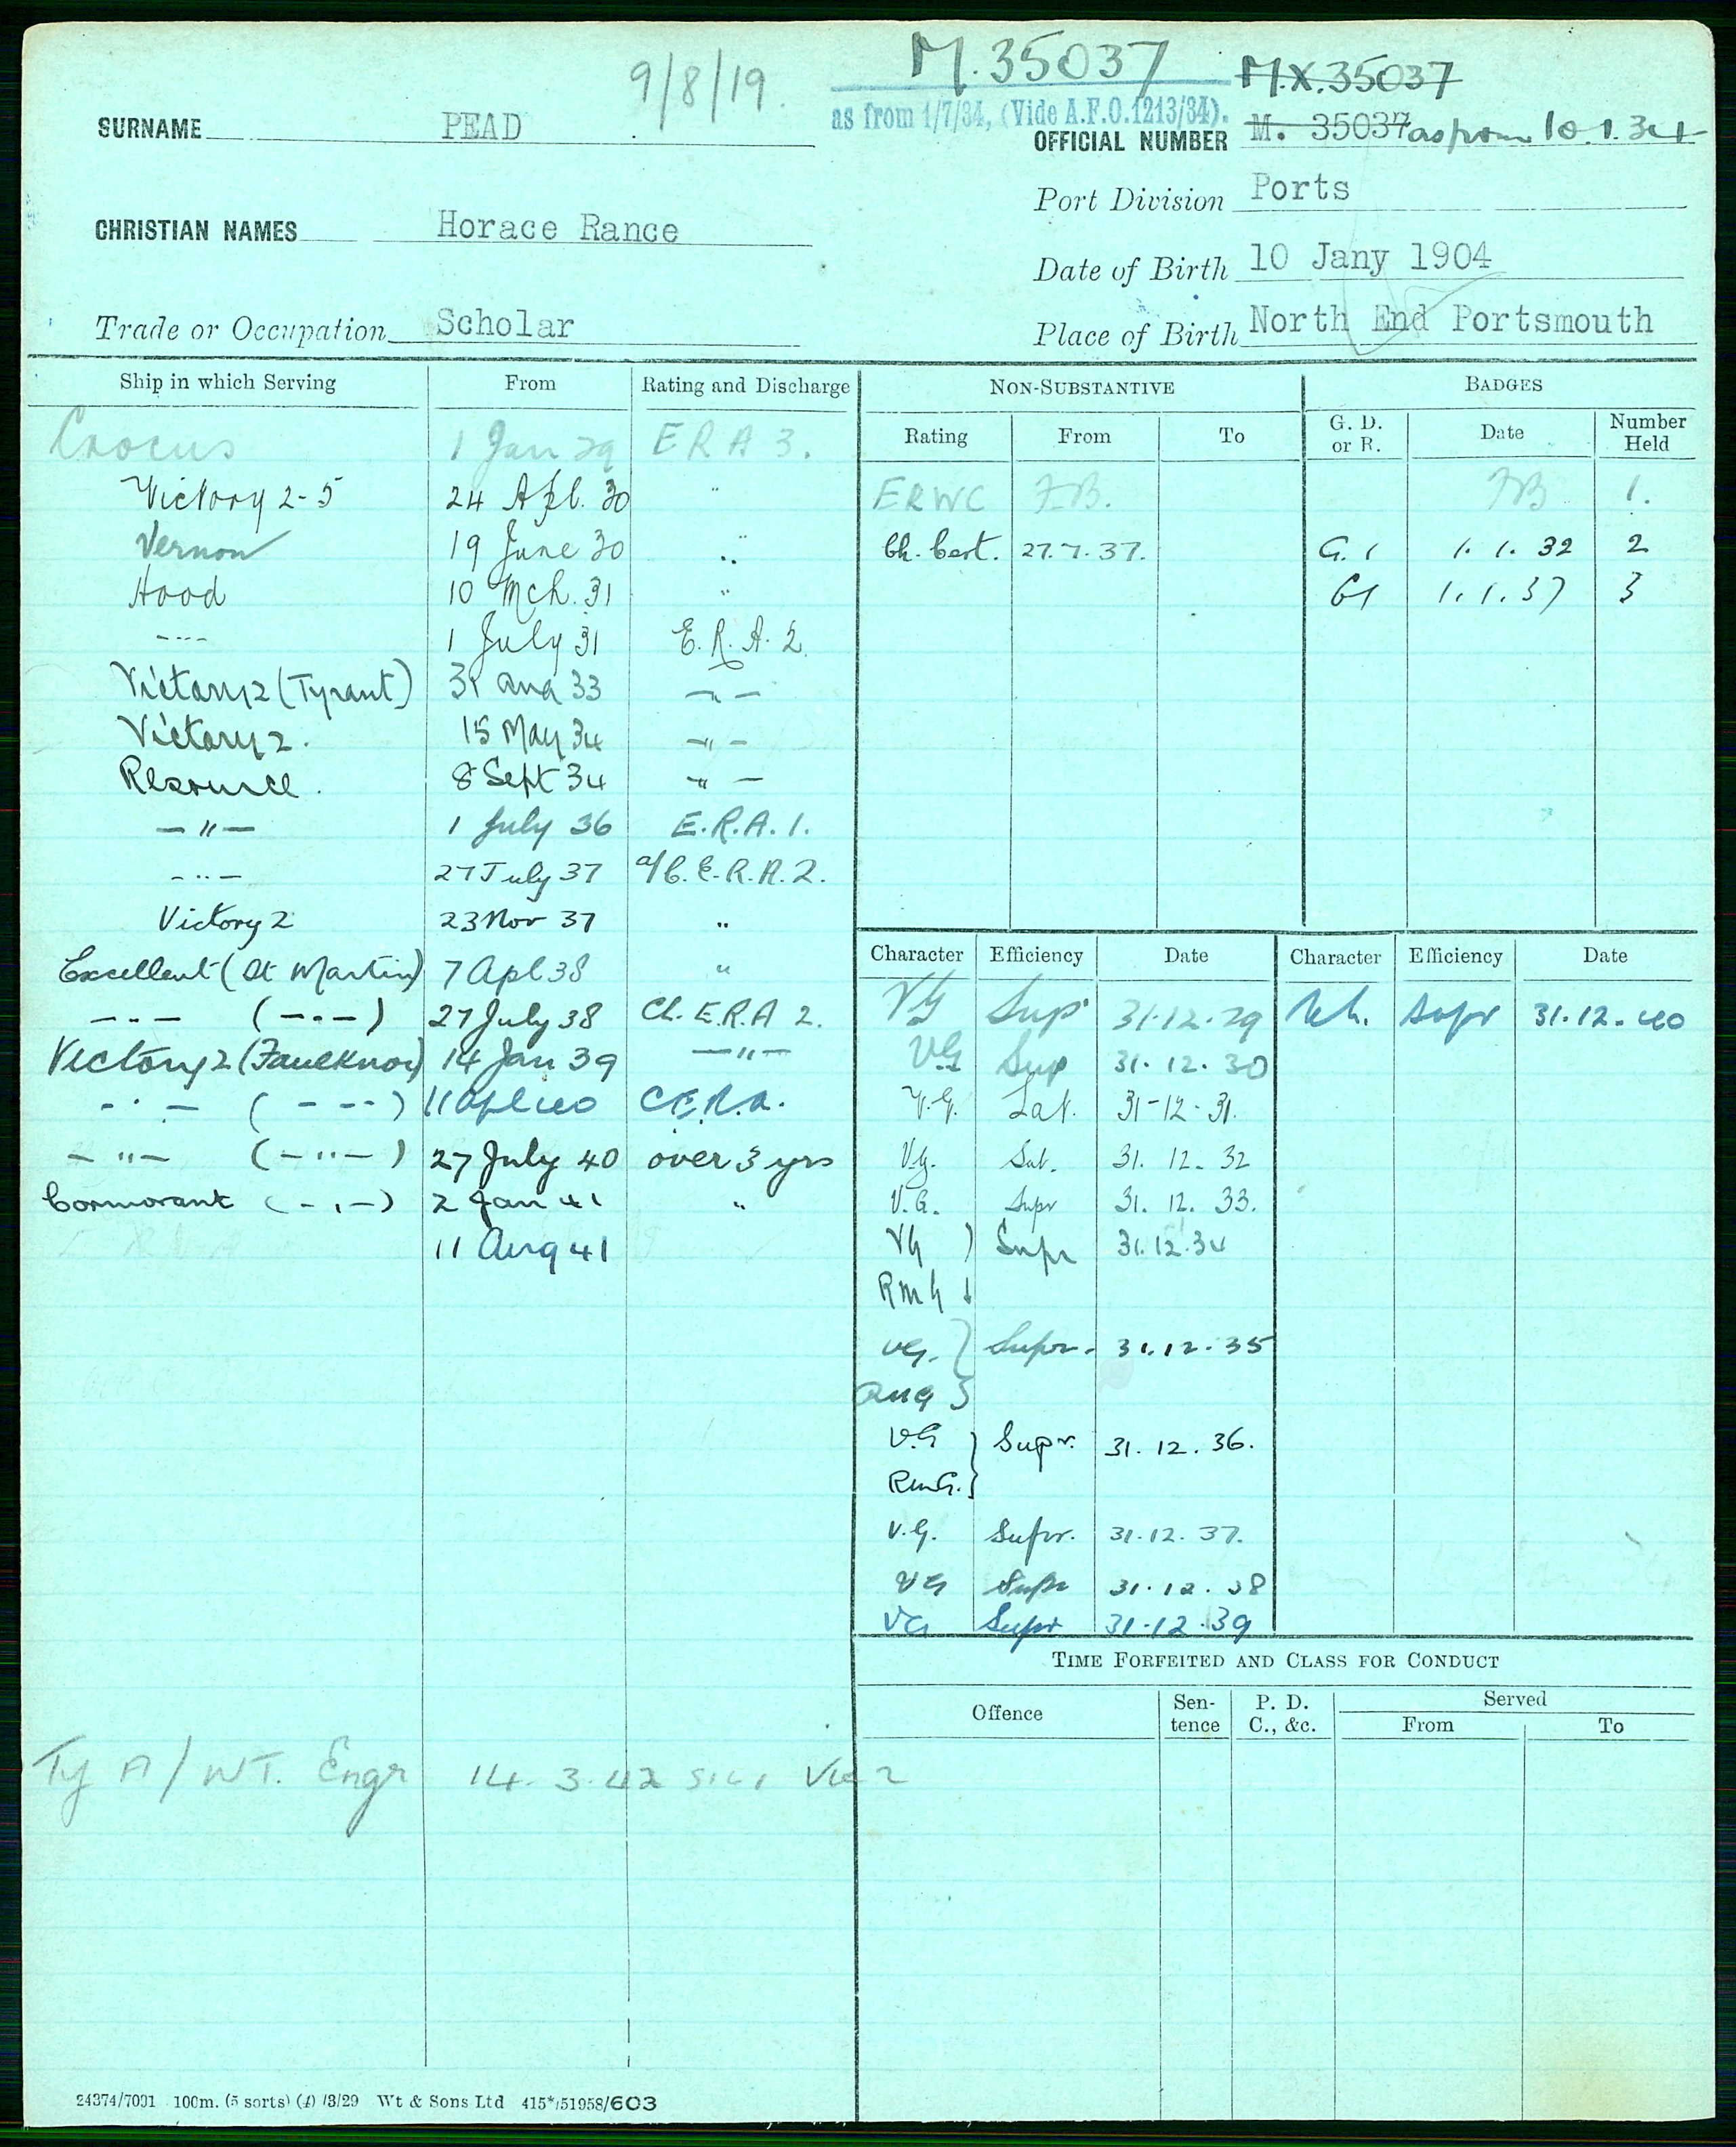 9/8/19.
M. 35037
M.X. 35037
as from 1/7/34, (Vide A.F.O.1213/34).
SURNAME PEAD
OFFICIAL NUMBER M. 35037 as from 10.1.34
Port Division Ports
CHRISTIAN NAMES Horace Rance
Date of Birth 10 Jany 1904
Trade or Occupation Scholar
Place of Birth North End Portsmouth
Ship in which Serving From Rating and Discharge
Crocus 1 Jan 29 E R A 3.
Victory 2-5 24 Apl. 30 "
Vernon 19 June 30 "
Hood 10 Mch. 31 "
-"- 1 July 31 E.R.A. 2.
Victory 2 (Tyrant) 31 Aug 33 -"-
Victory 2. 15 May 34 -"-
Resource. 8 Sept 34 -"-
-"- 1 July 36 E.R.A. 1.
-"- 27 July 37 a/C.E.R.A. 2.
Victory 2 23 Nov 37 "
Excellent (St Martin) 7 Apl 38 "
-"- (-"-) 27 July 38 Ch. E.R.A 2.
Victory 2 (Faulknor) 14 Jan 39 -"-
-"- (-"-) 11 Apl 40 C.E.R.A.
-"- (-"-) 27 July 40 over 3 yrs
Cormorant (-"-) 2 Jan 41 "
11 Aug 41
Ty A/WT. Engr 14.3.42 Vic 2
NON-SUBSTANTIVE
Rating From To
ERWC FB.
Ch. Cert. 27.7.37.
BADGES
G. D. or R. Date Number Held
FB 1.
G. 1 1.1.32 2
G1 1.1.37 3
Character Efficiency Date Character Efficiency Date
VG Sup 31.12.29 Supr 31.12.40
VG Sup 31.12.30
V.G. Sat. 31-12-31.
V.G. Sat. 31.12.32
V.G. Supr 31.12.33.
VG ) Supr 31.12.34
RMG
VG. } Supr. 31.12.35
V.G } Supr. 31.12.36.
RMG. }
V.G. Supr. 31.12.37.
VG Supr 31.12.38
VG Supr 31.12.39
TIME FORFEITED AND CLASS FOR CONDUCT
Offence Sen-tence P. D. C., &c. Served
From To
24374/7091 100m. (5 sorts) (4) /3/29 Wt & Sons Ltd 415*/51958/603